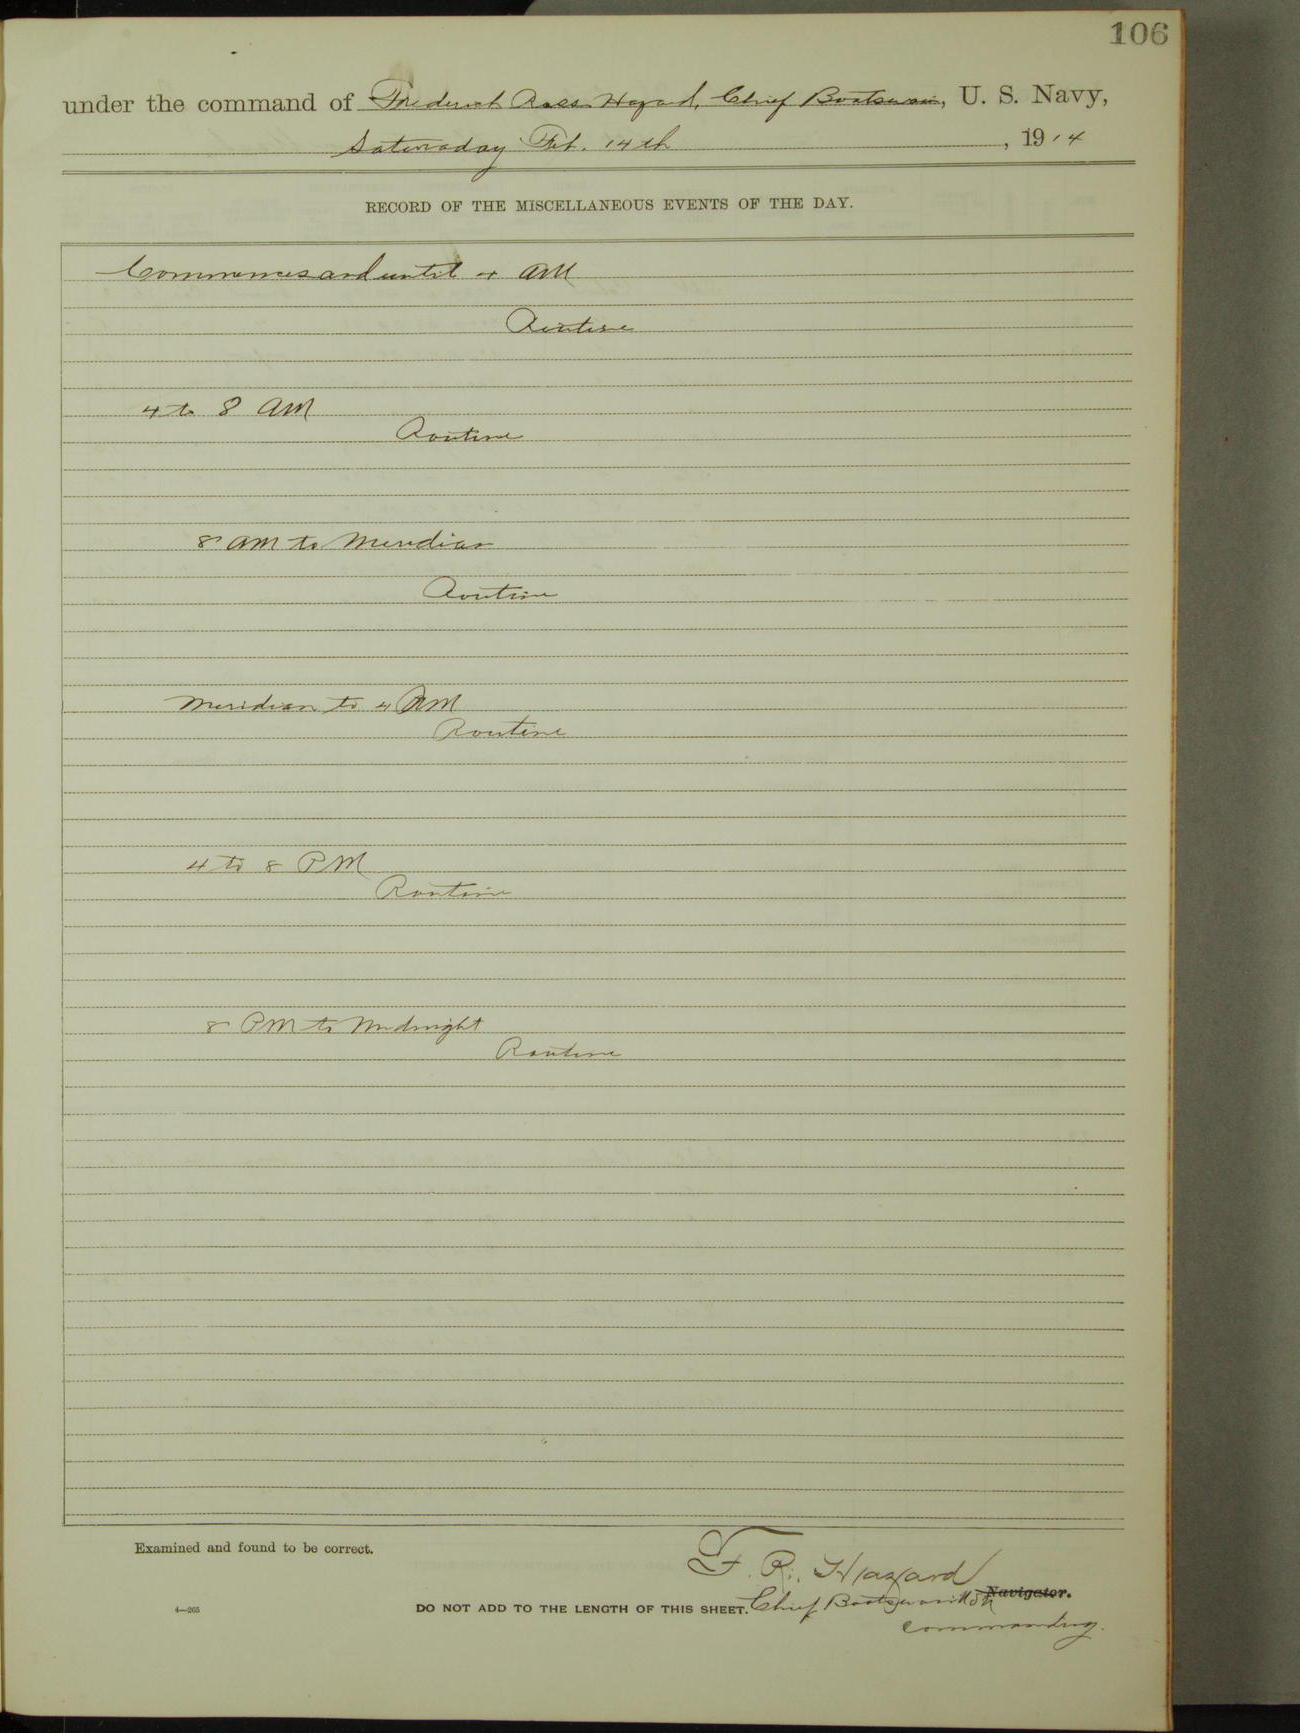 106
under the command of Frederick Ross Hazard, Chief Boatswain, U. S. Navy,
Saturaday Feb. 14th, 1914
RECORD OF THE MISCELLANEOUS EVENTS OF THE DAY.
Commences and until 4 AM
Routine
4 to 8 AM
Routine
8 AM to Meridian
Routine
Meridian to 4 PM
Routine
4 to 8 PM
Routine
8 PM to Midnight
Routine
Examined and found to be correct.
F. R. Hazard
Navigator.
4—265
DO NOT ADD TO THE LENGTH OF THIS SHEET. Chief Boatswain USN
Commanding.